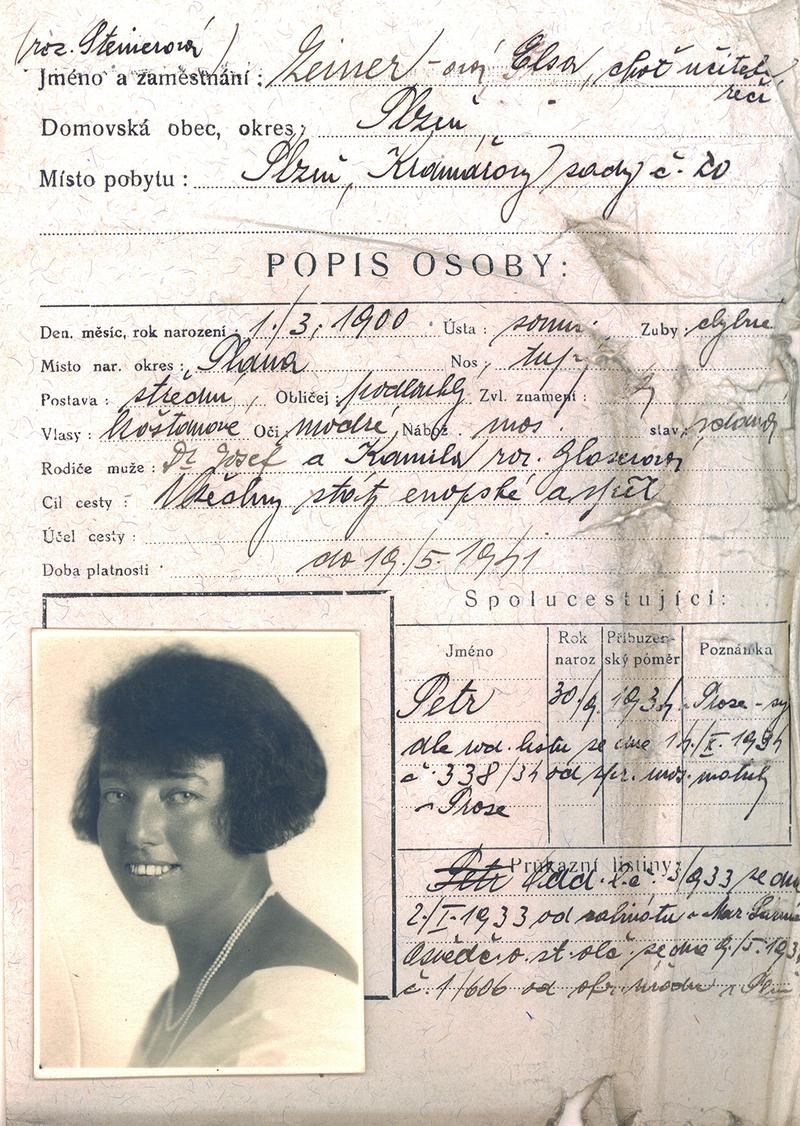 (roz. Steinerová)
Jméno a zaměstnání: Zeiner-ová Elsa, choť učitele
řečí
Domovská obec, okres: Plzeň
Místo pobytu: Plzeň, Kramářovy sady č. 20
POPIS OSOBY:
Den, měsíc, rok narození: 1./3. 1900 Ústa: Zuby:
Místo nar. okres: Planá Nos:
Postava: střední Obličej: podlouhlý Zvl. znamení:
Vlasy: kaštanové Oči modré, Nábož. mos. stav:
Rodiče muže: Dr. Josef a Kamila roz. Glaserová
Cíl cesty: Všechny státy evropské a zpět
Účel cesty:
Doba platnosti do 19./5. 1941
Spolucestující:
Jméno Rok naroz Příbuzenský poměr Poznámka
Petr 30./9. 1934
dle rod. listu ze dne 1934
č. 338/34 od
Průkazní listiny:
Petr Odd. l. č. 3/1933 ze dne
2./I. 1933 od rabinátu Mar. Lázně
Osvědč. o st. obč. ze dne 9./5. 193
č. 1/606 od okr. úřadu